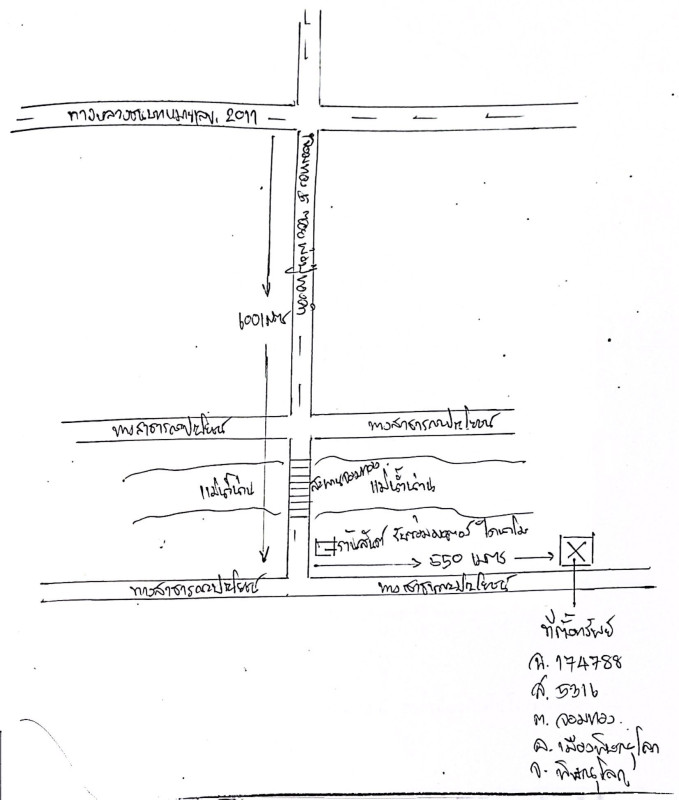 ทางหลวงชนบทหมายเลข. 2011
600 เมตร
ทางสาธารณประโยชน์
ทางสาธารณประโยชน์
แม่น้ำน่าน
สะพานจอมทอง
แม่น้ำน่าน
รับซ่อมมอเตอร์ ไดนาโม
550 เมตร
ทางสาธารณประโยชน์
ทางสาธารณประโยชน์
ที่ตั้งทรัพย์
ฉ. 174788
ส. 5316
ต. จอมทอง.
อ. เมืองพิษณุโลก
จ. พิษณุโลก